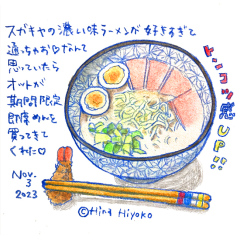 スガキヤの濃い味ラーメンが好きすぎて
通っちゃお♡なんて
思っていたら
オットが
期間限定
即席めんを
買ってきて
くれた♡
トンコツ感UP!!
Nov.
3
2023
©Hina Hiyoko